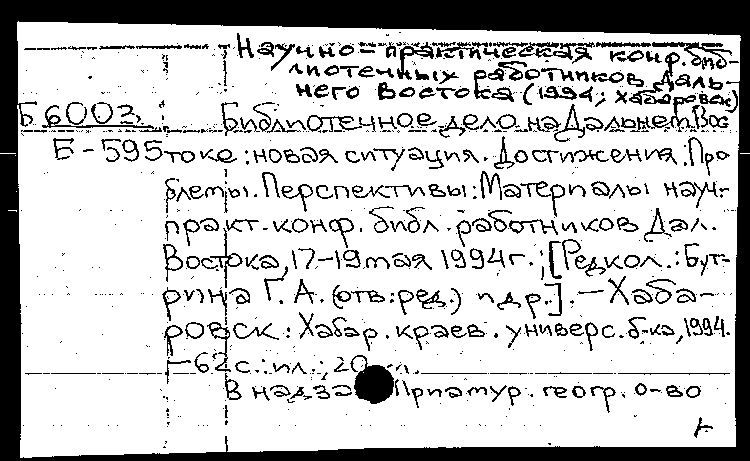 Научно-практическая конф. биб-
лиотечных работников Даль-
него Востока (1994; Хабаровск)
Б6003 Библиотечное дело на Дальнем Вос
Б-595 токе: новая ситуация. Достижения. Про
блемы. Перспективы: Материалы науч-
практ. конф. библ. работников Дал.
Востока, 17-19 мая 1994г.; [Редкол.: Бут-
рина Г. А. (отв. ред.) и др.]. - Хаба-
ровск: Хабар. краев. универс. б-ка, 1994.
- 62 с.: ил.; 20
В надзаг. Приамур. геогр. о-во